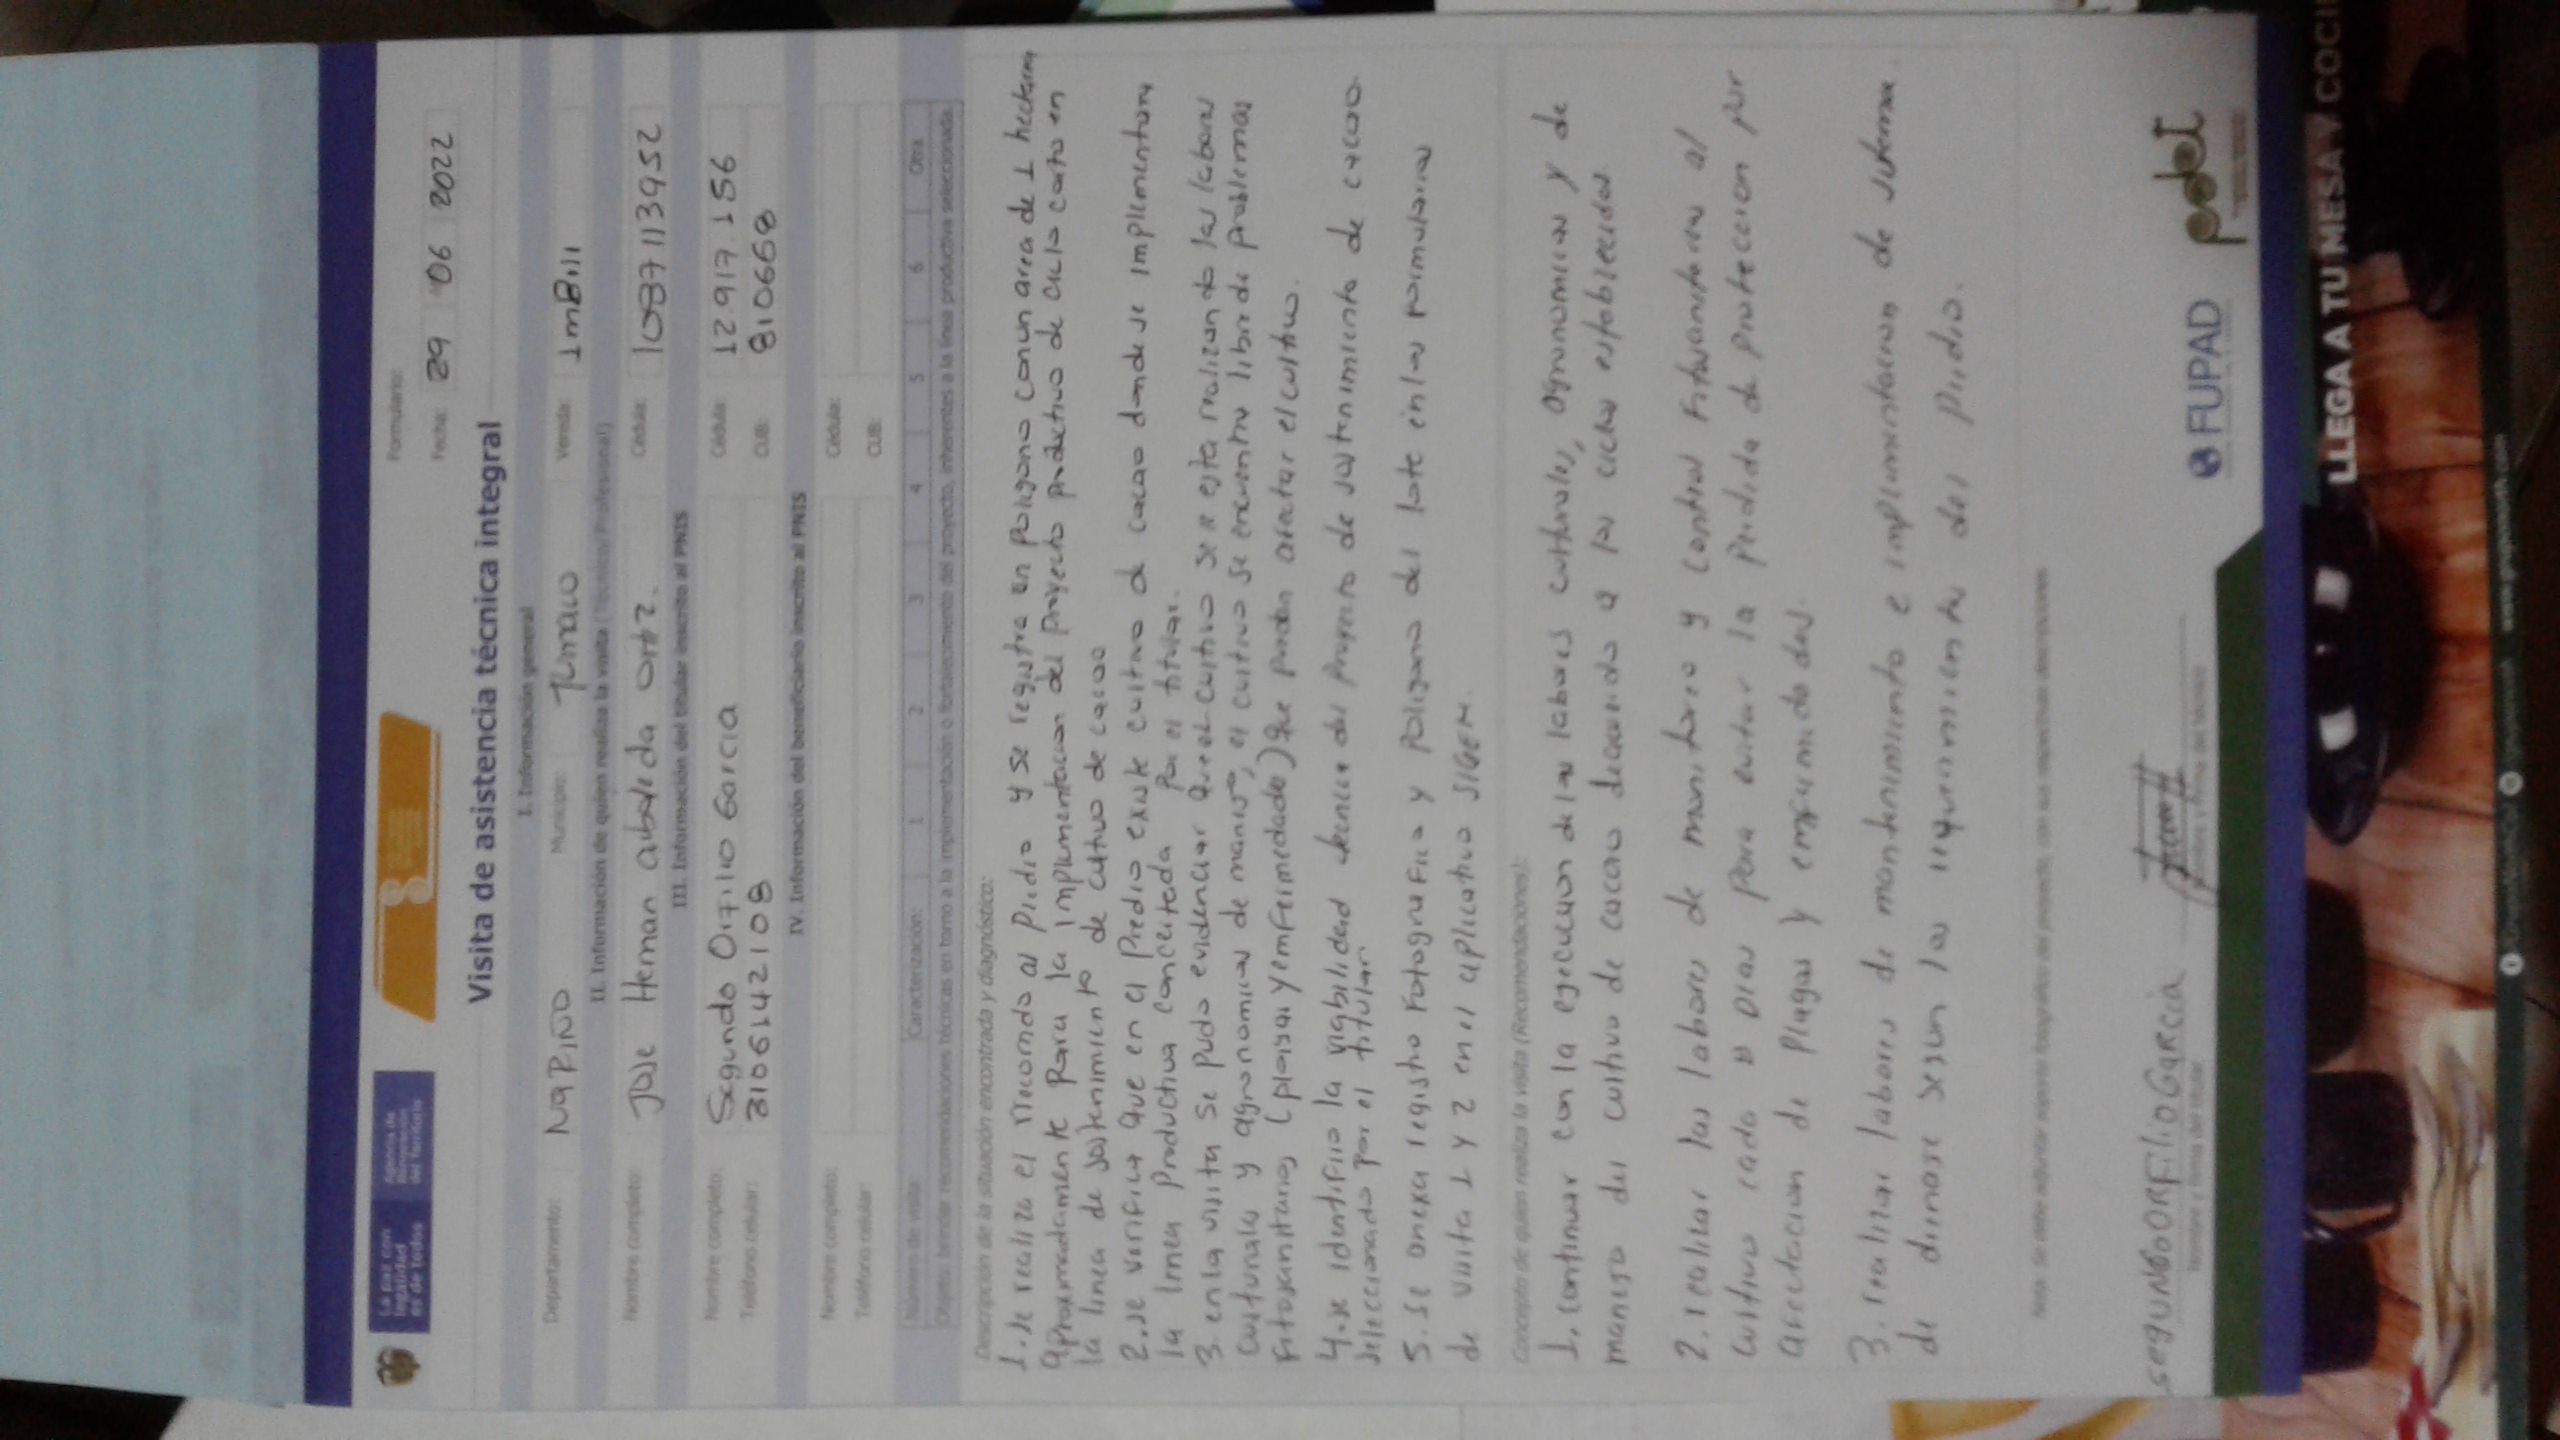 La paz con legalidad es de todos
Agencia de Renovación del Territorio
Formulario:
Fecha: 29 06 2022
Visita de asistencia técnica integral
I. Información general
Departamento: NaRIÑO Municipio: Tumaco Vereda: ImBili
II. Información de quien realiza la visita (Técnico/ Profesional)
Nombre completo: Jose Hernan Cédula: 1087113952
III. Información del titular inscrito al PNIS
Nombre completo: Segundo Orifilio Garcia Cédula: 12.917.156
Teléfono celular: 3106142108 CUB: 810668
IV. Información del beneficiario inscrito al PNIS
Nombre completo: Cédula:
Teléfono celular: CUB:
Número de visita: Caracterización: 1 2 3 4 5 6 Otra
Objeto: brindar recomendaciones técnicas en torno a la implementación o fortalecimiento del proyecto, inherentes a la línea productiva seleccionada.
Descripción de la situación encontrada y diagnóstico:
1. se realiza el recorrido al Predio y se registra un Poligono con un area de 1 hectarea
aproximadamente Para la implementacion del Proyecto Productivo de ciclo corto en
la linea de sostenimiento de cultivo de cacao
2. se verifica que en el Predio existe cultivo de cacao donde se implementara
la linea Productiva concertada Por el titular.
3. en la visita se pudo evidenciar que el cultivo se le esta realizando las labores
culturales y agronomicas de manejo, el cultivo se encuentra libre de problemas
Fitosanitarios (plagas y enfermedades) que puedan afectar el cultivo.
4. se identifico la viabilidad tecnica del Proyecto de sostenimiento de cacao
seleccionado por el titular.
5. se anexa registro Fotografico y Poligono del lote en los formularios
de visita 1 y 2 en el aplicativo SIGEM.
Concepto de quien realiza la visita (Recomendaciones):
1. continuar con la ejecucion de las labores culturales, agronomicas y de
manejo del cultivo de cacao deacuerdo a los ciclos establecidos.
2. realizar las labores de monitoreo y control Fitosanitario al
cultivo cada 8 Dias Para evitar la Perdida de Proteccion por
afectacion de Plagas y enfermedades.
3. realizar labores de mantenimiento e implementacion de sistema
de drenaje segun los requerimiento del Predio.
Nota: Se debe adjuntar reporte fotográfico del proyecto, con sus respectivas descripciones
segUNDO ORFiliO GaRCia
Nombre y firma del titular
Nombre y firma del técnico
FUPAD
pdet
LLEGA A TU MESA Y COCI